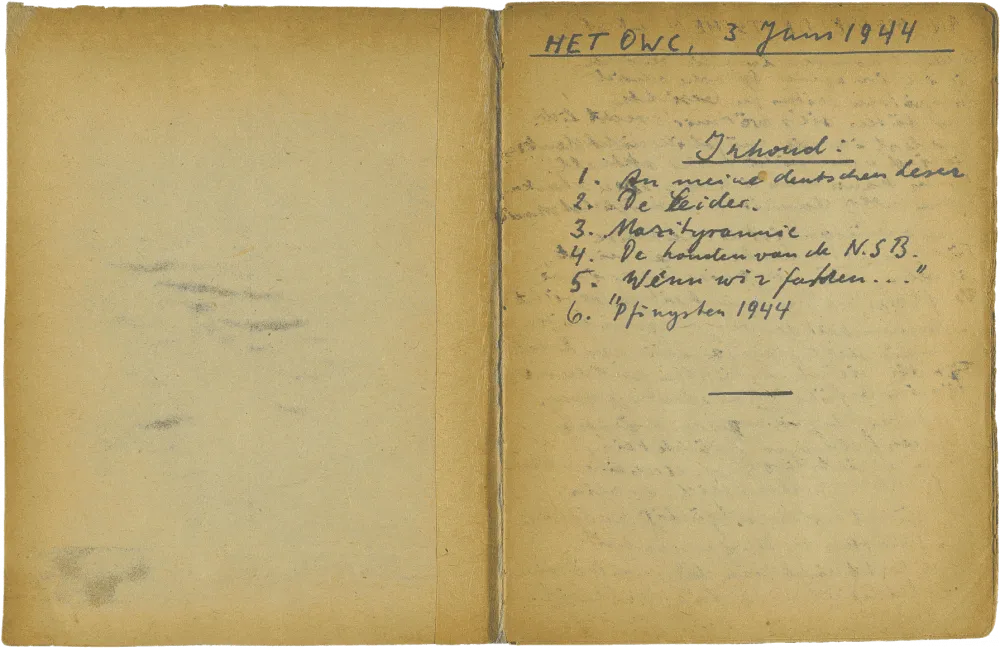 HET OWC, 3 Juni 1944
Inhoud:
1. An meine deutschen Leser
2. De Leider.
3. Nazityrannie
4. De honden van de N.S.B.
5. Wenn wir fahren..."
6. "Pfingsten 1944